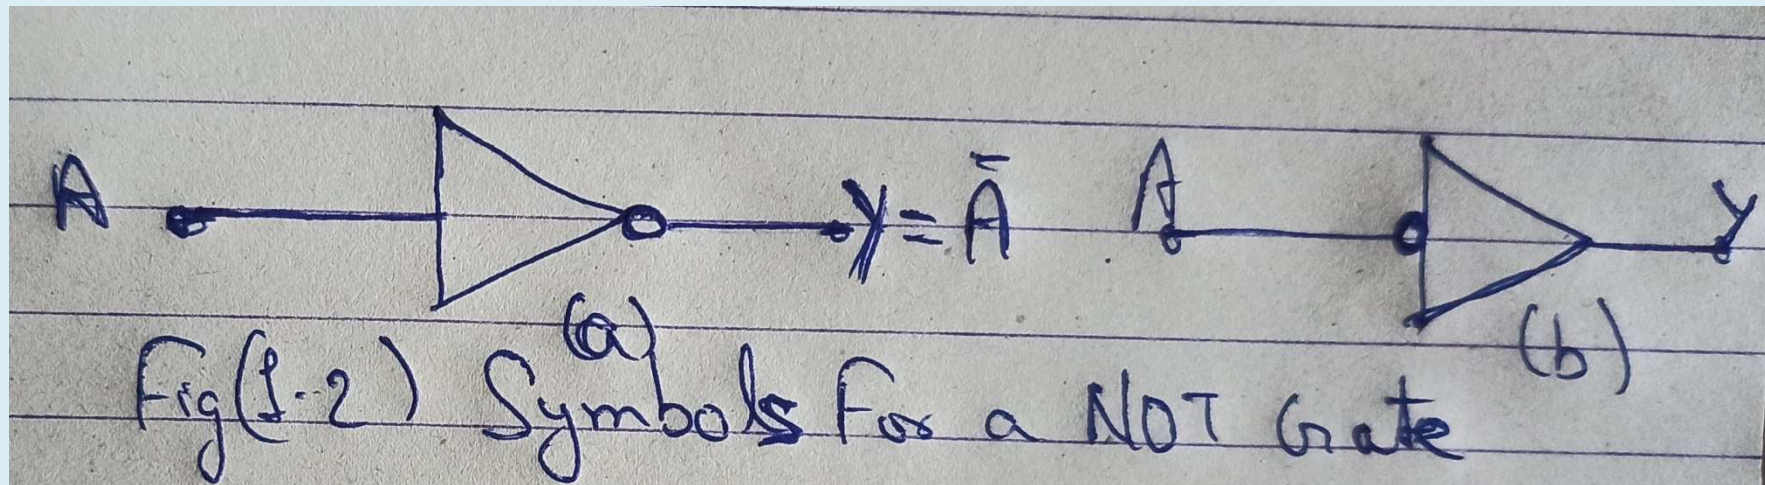 A Y = Ā A Y
(a) (b)
Fig(1-2) Symbols For a NOT Gate